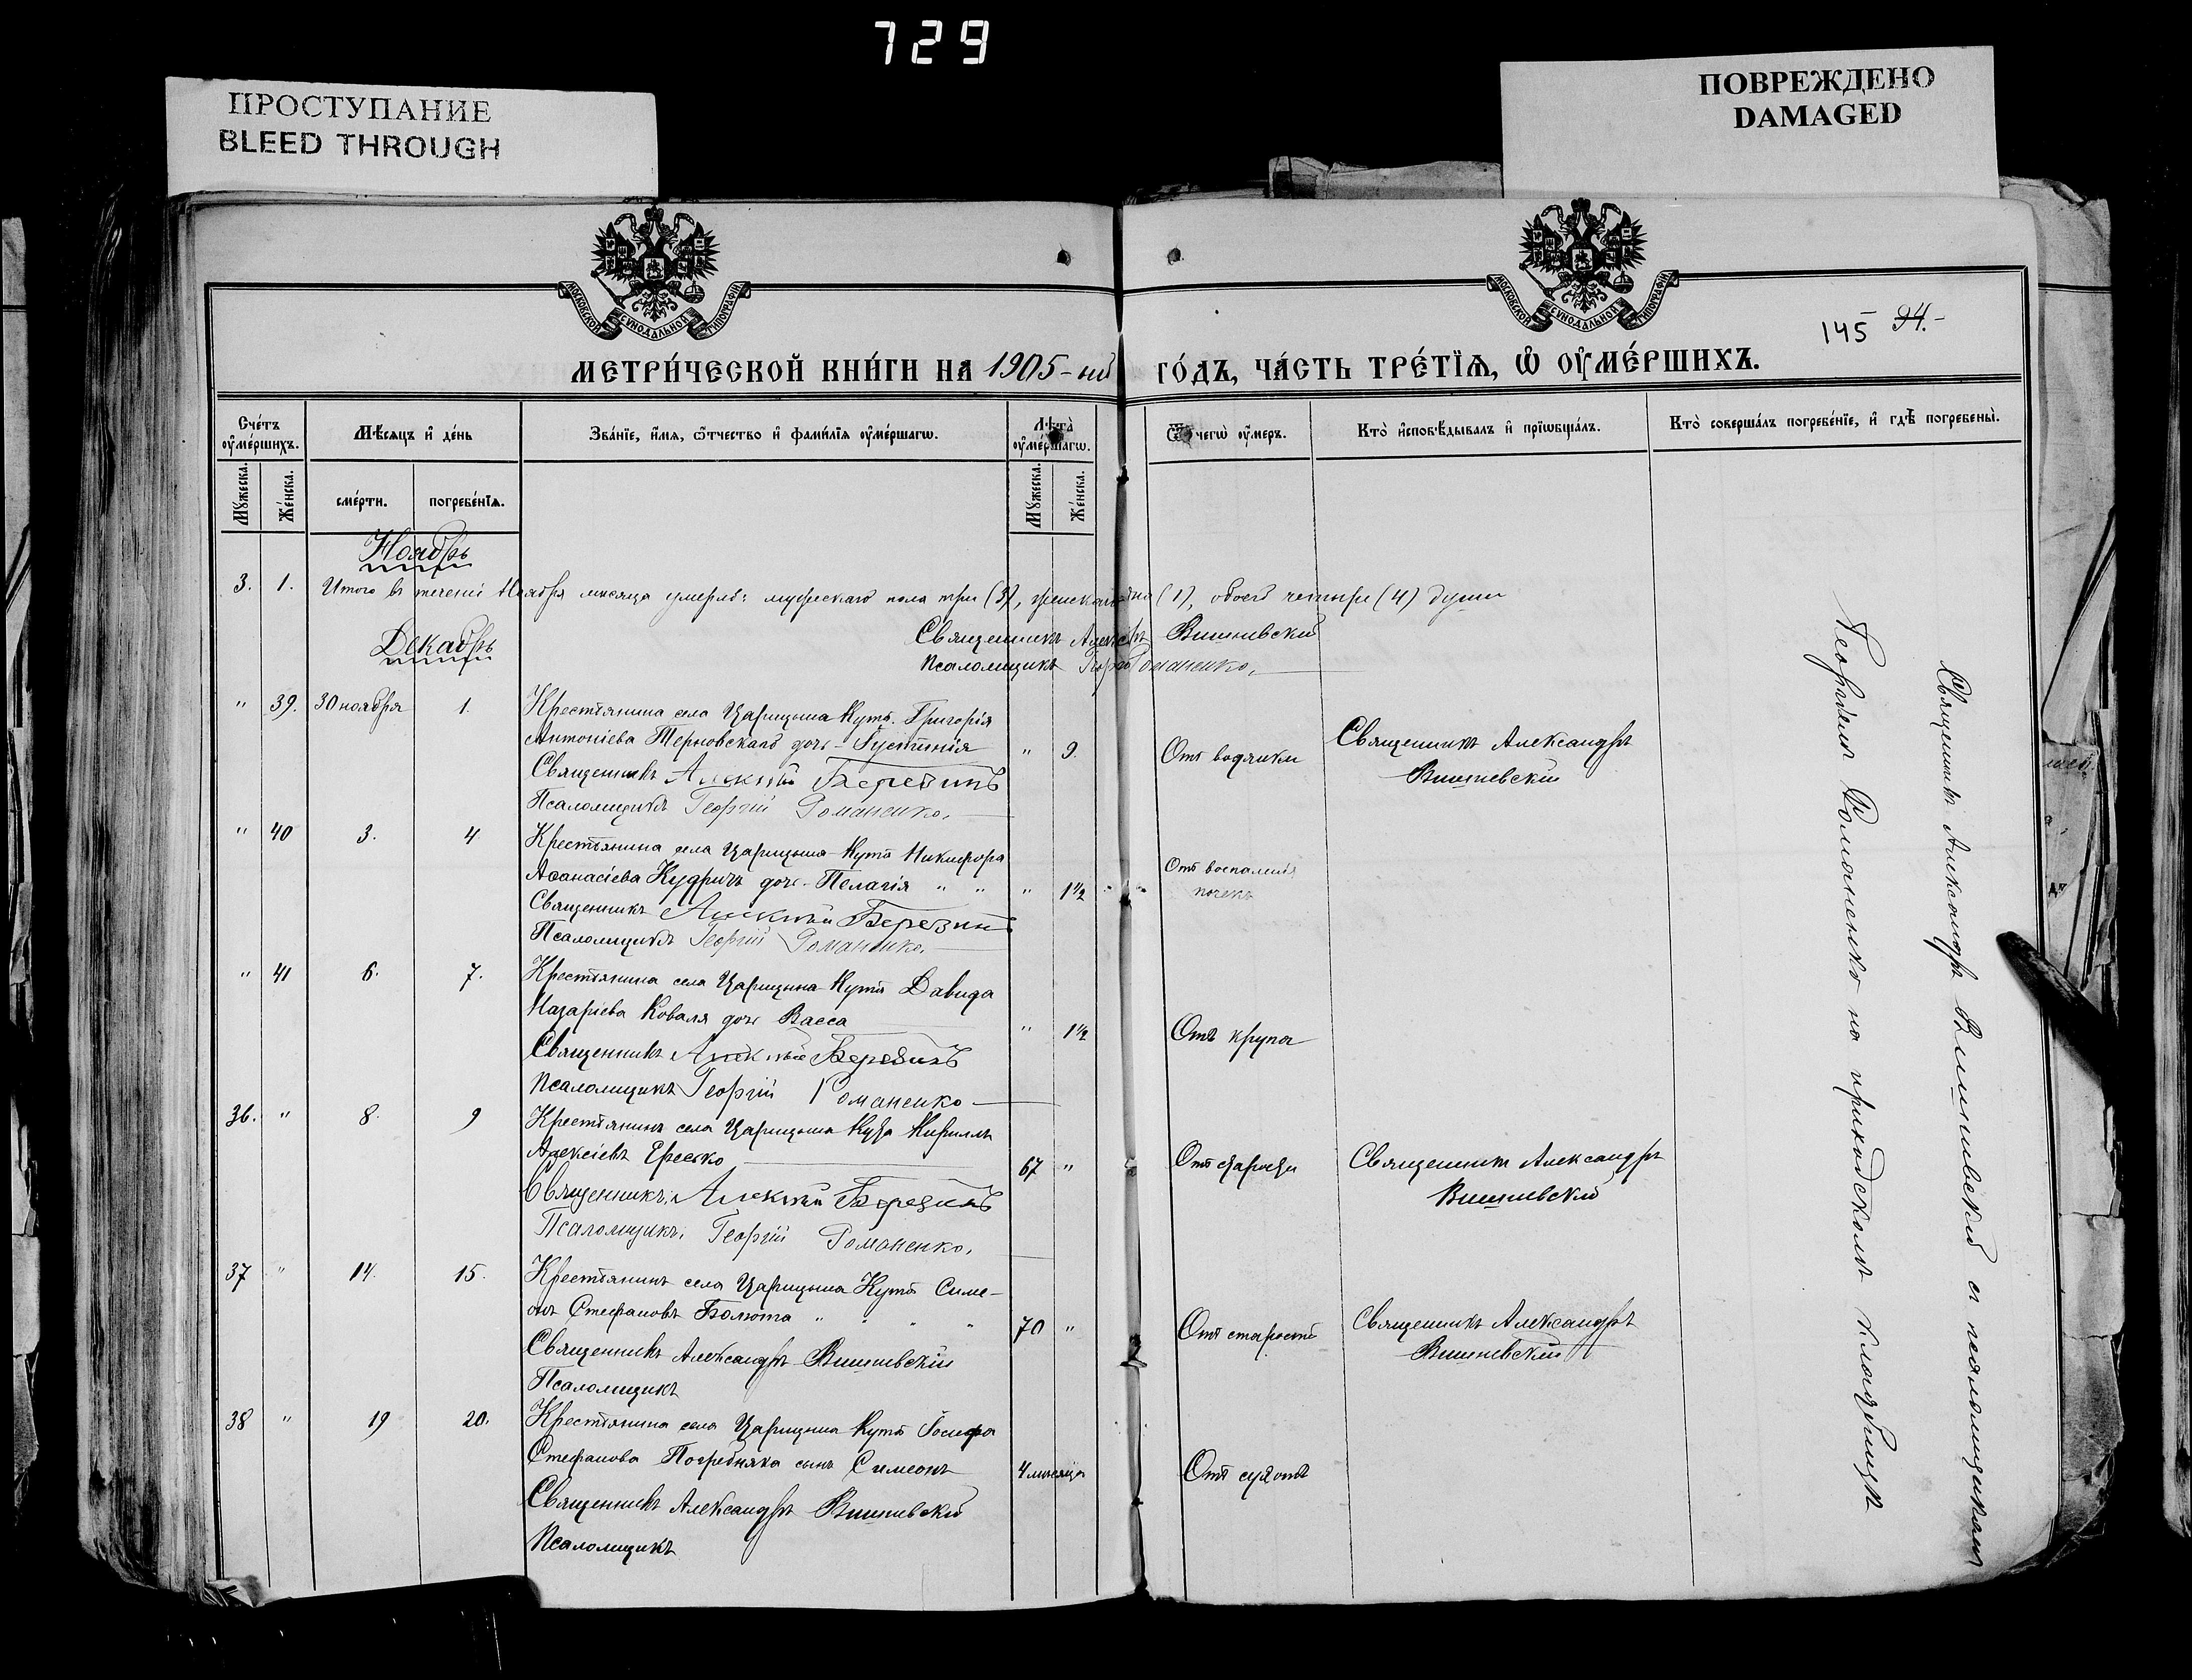 729
ПРОСТУПАНИЕ
BLEED THROUGH
ПОВРЕЖДЕНО
DAMAGED
МОСКОВСКОЙ СѴНОДАЛЬНОЙ ТИПОГРАФІИ
МОСКОВСКОЙ СѴНОДАЛЬНОЙ ТИПОГРАФІИ
145 94.-
МЕТРИ́ЧЕСКОЙ КНИ́ГИ НА 1905-ый ГО́ДЪ, ЧА́СТЬ ТРЕ́ТЇѦ, Ѡ ОУМЕ́РШИХЪ.
Счетъ оумершихъ.
Мѣсяцъ и день
Званіе, имя, ѿчество и фамилія оумершагѡ.
Лѣта оумершагѡ.
Ѿ чегѡ оумеръ.
Кто исповѣдывалъ и пріѡбщалъ.
Кто совершалъ погребеніе, и гдѣ погребены.
Мужеска. Женска. смерти. погребенія. Мужеска. Женска.
Ноябрь
3. 1. Итого въ теченіи Ноября мѣсяца умерло: мужескаго пола три (3), женскаго одна (1), обоего четыре (4) души
Священникъ Александръ Вишневскій
Декабрь
Псаломщикъ Георгій Романенко.
" 39. 30 ноября 1. Крестьянина села Царицына Кута Григорія
Антоніева Терновскаго дочь - Густинія " 9. Отъ водянки Священникъ Александръ
Вишневскій
Священникъ Алексій Березинъ
Псаломщикъ Георгій Романенко.
" 40 3. 4 Крестьянина села Царицына Кута Никифора
Аѳанасіева Кудричъ дочь - Пелагія " " " 1½ Отъ воспаленія
почекъ
Священникъ Алексій Березинъ
Псаломщикъ Георгій Романенко.
" 41 6. 7. Крестьянина села Царицына Кута Давида
Назаріева Коваля дочь Васса " 1½ Отъ крупа
Священникъ Алексій Березинъ
Псаломщикъ Георгій Романенко
36. " 8. 9 Крестьянинъ села Царицына Кута Кириллъ
Алексіевъ 67 " Отъ старости Священникъ Александръ
Вишневскій
Священникъ Алексій Березинъ
Псаломщикъ Георгій Романенко.
37 " 14. 15. Крестьянинъ села Царицына Кута Симе-
онъ Стефановъ Болюта " " " 70 " Отъ старости Священникъ Александръ
Вишневскій
Священникъ Александръ Вишневскій
Псаломщикъ
38 " 19 20. Крестьянина села Царицына Кута Іосифа
Стефанова Погребняка сынъ Симеонъ 4 мѣсяца Отъ сухотъ
Священникъ Александръ Вишневскій
Псаломщикъ
Священникъ Александръ Вишневскій съ псаломщикомъ
Георгіемъ Романенко на приходскомъ кладбищѣ